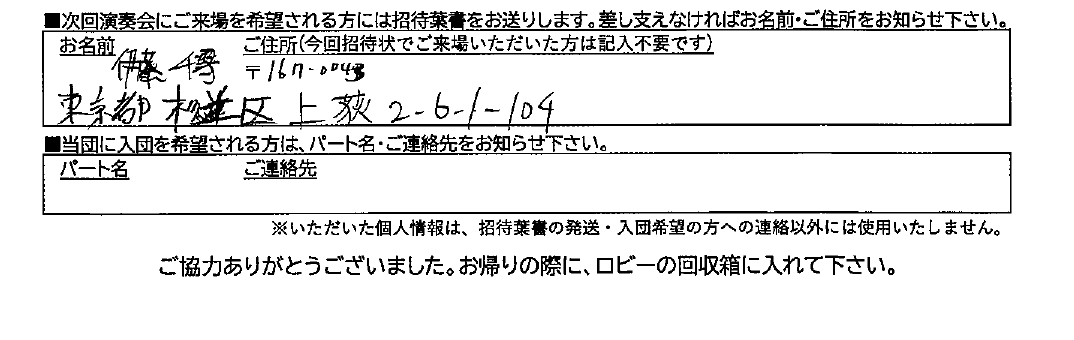 ■次回演奏会にご来場を希望される方には招待葉書をお送りします。差し支えなければお名前・ご住所をお知らせ下さい。
お名前 ご住所(今回招待状でご来場いただいた方は記入不要です)
伊藤 千尋 〒167-0043
東京都杉並区上荻2-6-1-104
■当団に入団を希望される方は、パート名・ご連絡先をお知らせ下さい。
パート名 ご連絡先
※いただいた個人情報は、招待葉書の発送・入団希望の方への連絡以外には使用いたしません。
ご協力ありがとうございました。お帰りの際に、ロビーの回収箱に入れて下さい。